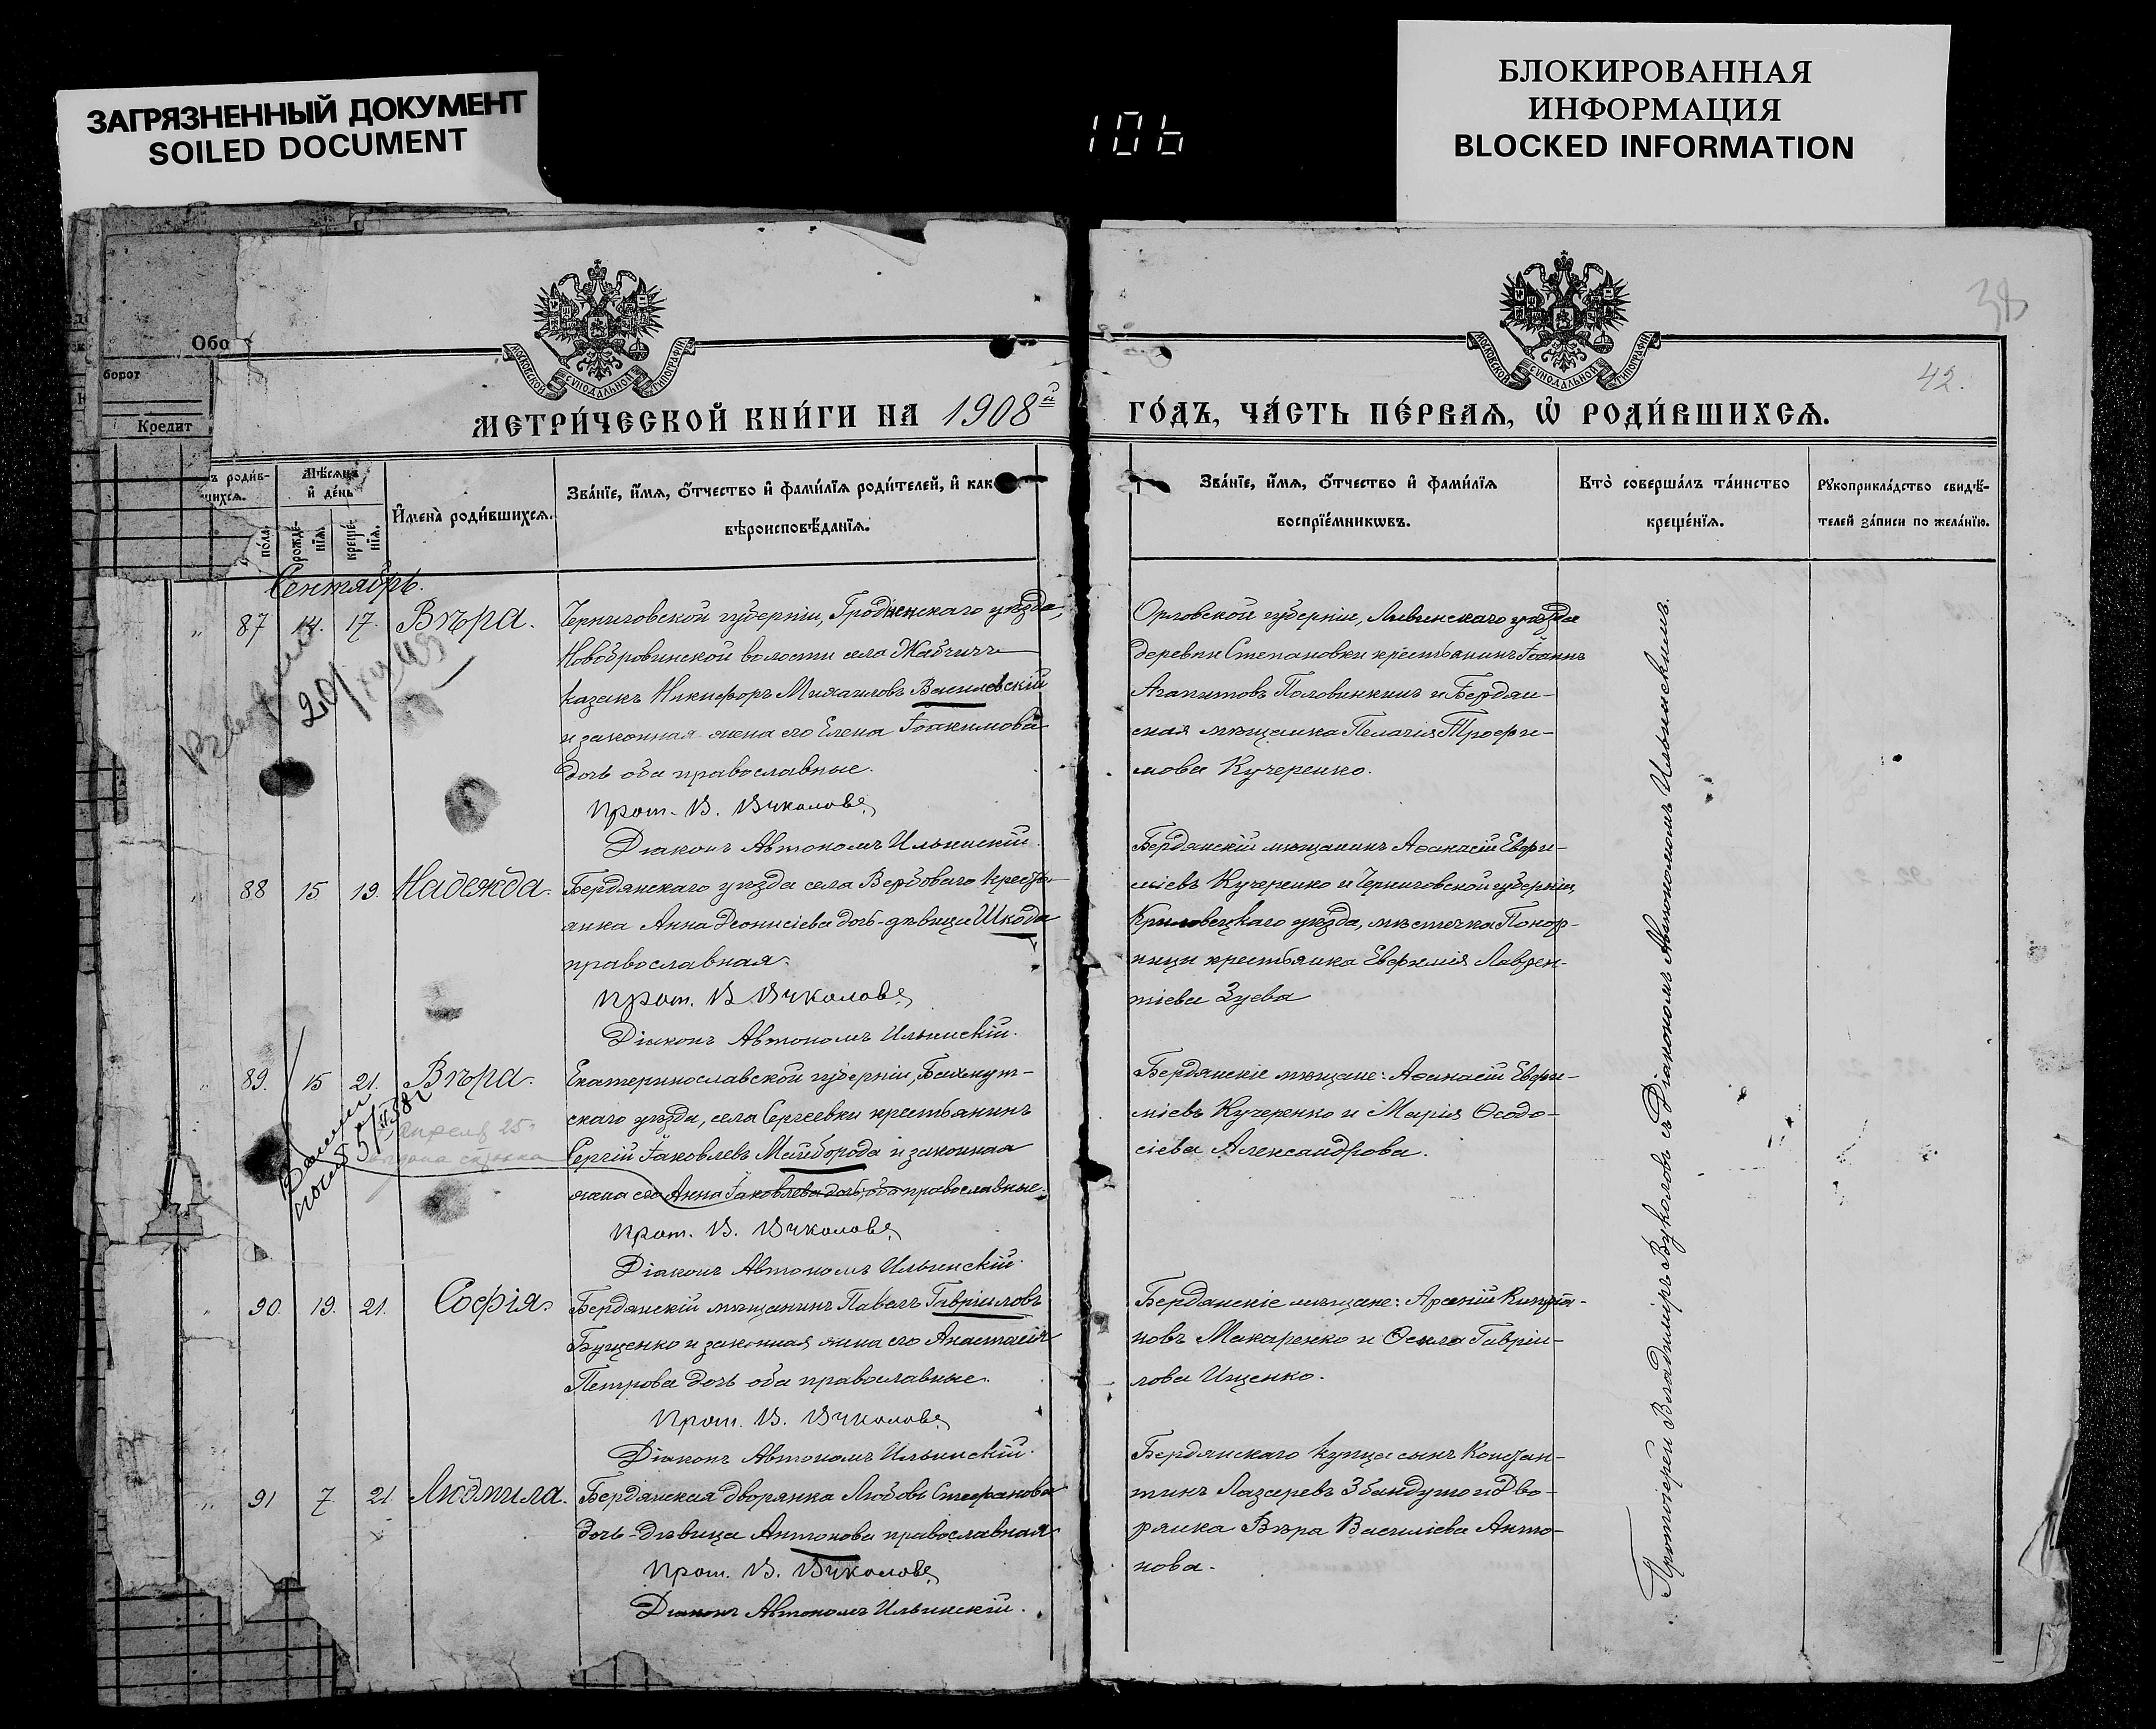 ЗАГРЯЗНЕННЫЙ ДОКУМЕНТ
SOILED DOCUMENT
106
БЛОКИРОВАННАЯ
ИНФОРМАЦИЯ
BLOCKED INFORMATION
38
42.
Обо
борот
Кредит
МОСКОВСКОЙ СѴНОДАЛЬНОЙ ТИПОГРАФІИ
МОСКОВСКОЙ СѴНОДАЛЬНОЙ ТИПОГРАФІИ
МЕТРИ́ЧЕСКОЙ КНИ́ГИ НА 1908й
ГО́ДЪ, ЧА́СТЬ ПЕ́РВАѦ, Ѡ҆ РОДИ́ВШИХСѦ.
ъ роди́в-
шихсѧ.
по́ла.
Мѣ́сѧцъ
и҆ де́нь
рожде́-
нїѧ.
креще́-
нїѧ.
И҆мена̀ роди́вшихсѧ.
Зва́нїе, и҆́мѧ, ѻ҆́тчество и҆ фами́лїѧ роди́телей, и҆ как
вѣроисповѣ́данїѧ.
Зва́нїе, и҆́мѧ, ѻ҆́тчество и҆ фами́лїѧ
воспрїе́мникѡвъ.
Кто̀ соверша́лъ та́инство
креще́нїѧ.
Рꙋкоприкла́дство свидѣ́-
телей за́писи по жела́нїю.
Сентябрь.
„ 87 14. 17. Вѣра.
Черниговской губерніи, Гродненскаго уѣзда,
Новобровинской волости села Жабчичи
казакъ Никифоръ Михаиловъ Василевскій
и законная жена его Елена Іоакимова
дочь оба православные.
Прот. В. Вуколовъ
Діаконъ Автономъ Ильинскій.
Орловской губерніи, Ливенскаго уѣзда
деревни Степановки крестьянинъ Іоаннъ
Агапитовъ Половинкинъ и Бердян-
ская мѣщанка Пелагія Трофи-
мова Кучеренко.
„ 88 15 19. Надежда.
Бердянскаго уѣзда села Вербоваго кресть-
янка Анна Діонисіева дочь-дѣвица Шкода
православная.
Прот. В. Вуколовъ
Діаконъ Автономъ Ильинскій.
Бердянскій мѣщанинъ Аѳанасій Евфи-
міевъ Кучеренко и Черниговской губерніи,
уѣзда, мѣстечка Понор-
ницы крестьянка Евфимія Лаврен-
тіева Зуева
„ 89. 15 21. Вѣра.
Апреля 25
Екатеринославской губерніи, Бахмут-
скаго уѣзда, села Сергеевки крестьянинъ
Сергій Іаковлевъ Майборода и законная
жена его Анна Іаковлева дочь, оба православные.
Прот. В. Вуколовъ
Діаконъ Автономъ Ильинскій.
Бердянскіе мѣщане: Аѳанасій Евфи-
міевъ Кучеренко и Марія Ѳеодо-
сіева Александрова.
„ 90. 19. 21. Софія.
Бердянскій мѣщанинъ Павелъ Гавріиловъ
Бущенко и законная жена его Анастасія
Петрова дочь оба православные.
Прот. В. Вуколовъ
Діаконъ Автономъ Ильинскій.
Бердянскіе мѣщане: Арсеній Кипрія-
новъ Макаренко и Ѳекла Гавріи-
лова Ищенко.
„ 91 7 21. Людмила.
Бердянская дворянка Любовь Стефанова
дочь-дѣвица Антонова православная
Прот. В. Вуколовъ
Діаконъ Автономъ Ильинскій.
Бердянскаго купца сынъ Констан-
тинъ Лазаревъ Збандуто и Дво-
рянка Вѣра Василіева Анто-
нова.
Протоіерей Владиміръ Вуколовъ съ Діакономъ Автономомъ Ильинскимъ.